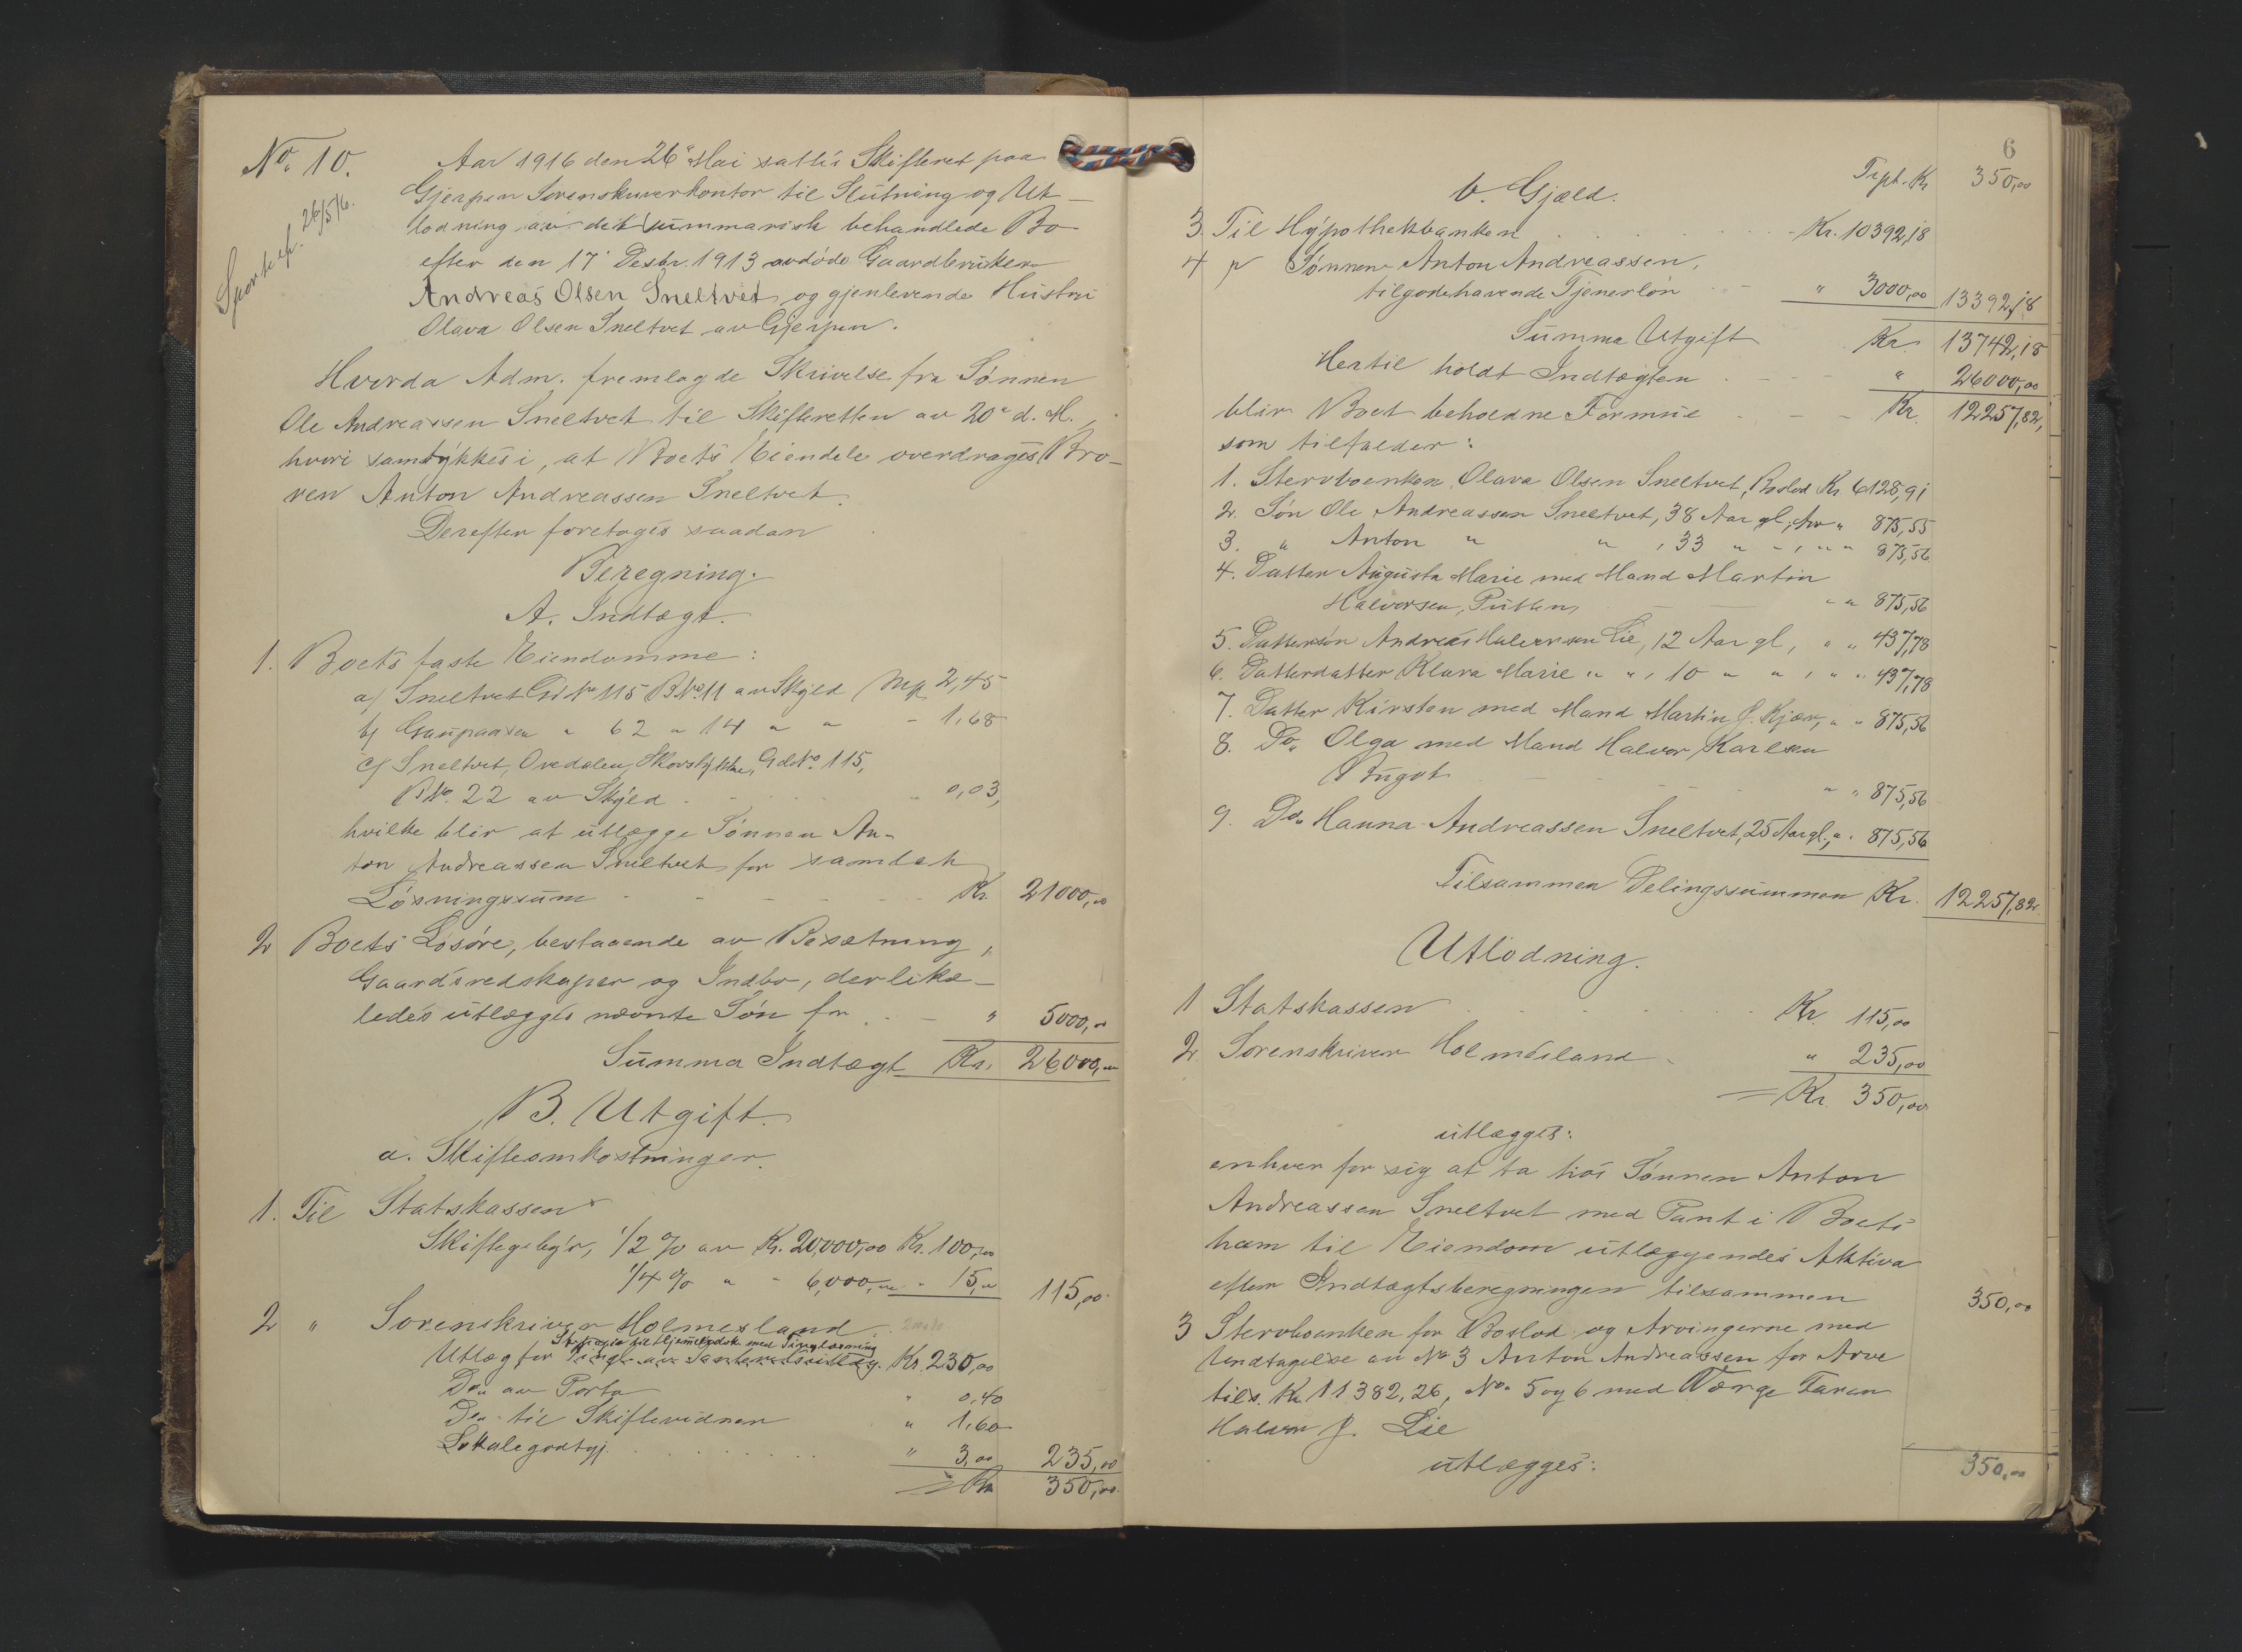 No. 10.
Sportl. eft. 26/5 16.
Aar 1916 den 26" Mai sattes Skifteret paa
Gjerpen Sorenskriverkontor til Slutning og Ut-
lodning av det summarisk behandlede Bo
efter den 17' Desbr. 1913 avdøde Gaardbruker
Andreas Olsen Sneltvet og gjenlevende Hustru
Olava Olsen Sneltvet av Gjerpen.
Hvorda Adm. fremlagde Skrivelse fra Sønnen
Ole Andreassen Sneltvet til Skifteretten av 20" d. M.,
hvori samtykkes i, at Boets Eiendele overdrages Bro-
ren Anton Andreassen Sneltvet.
Derefter foretoges saadan
Beregning.
A. Indtægt.
1. Boets faste Eiendomme:
a/ Sneltvet Gd No 115 B.No. 11 av Skyld Mk 2,45
b/ Gaupaasen " 62 " 14 " " - 1,68
c/ Sneltvet, Ovedalen Skovstykke, Gd No. 115,
B.No. 22 av Skyld . . . 0,03,
hvilke blir at utlægge Sønnen An-
ton Andreassen Sneltvet for samlet
Løsningssum - - - - Kr. 21000,00
2 Boets Løsøre, bestaaende av Besætning,
Gaardsredskaper og Indbo, der like-
ledes utlægges nævnte Søn for . - - " 5000,00
Summa Indtægt Kr. 26000,00
B. Utgift.
a. Skifteomkostninger.
1. Til Statskassen
Skiftegebyr, 1/2 % av Kr. 20,000,00 Kr. 100,00
1/4 % " - 6,000,00 " 15,00 115,00
2 " Sorenskriver Holmesland
til Hjemmelsdok. med Tinglæsning
Utlæg for Kr. 230,00
Do. av Porto " 0,40
Do. til Skiftevidner " 1,60
Lokalegodtgj. . . . . " 3,00 235,00
= Kr 350,00.
6
Trpt. Kr 350,00
b. Gjæld.
3. Til Hypothekbanken . . . . Kr. 10392,18
4 " Sønnen Anton Andreassen,
tilgodehavende Tjenerløn - " 3000,00 13392,18
Summa Utgift Kr. 13742,18
Hertil holdt Indtægten . - - - " 26000,00
blir Boet beholdne Formue - - - Kr. 12257,82,
som tilfalder:
1. Stervboenken Olava Olsen Sneltvet, Boslod Kr 6128,91
2. Søn Ole Andreassen Sneltvet, 38 Aar gl., Arv " 875,55
3. " Anton " " , 33 " " , " " 875,56
4. Datter Augusta Marie med Mand Martin
Halvorsen, Putten, - " 875,56
5. Dattersøn Andreas Halvorsen Lie, 12 Aar gl, " " 437,78
6. Datterdatter Klara Marie " " , 10 " " , " " 437,78
7. Datter Kirsten med Mand Martin J. Kjær, " " 875,56
8. Do. Olga med Mand Halvor Karlsen
" " 875,56
9. Do. Hanna Andreassen Sneltvet, 25 Aar gl., " " 875,56
Tilsammen Delingssummen Kr. 12257,82
Utlodning.
1 Statskassen . . . . . Kr. 115,00
2. Sorenskriver Holmesland . " 235,00
= Kr. 350,00
utlægges:
enhver for sig at ta hos Sønnen Anton
Andreassen Sneltvet med Pant i Boets
ham til Eiendom utlæggendes Aktiva
efter Indtægtsberegningen tilsammen 350,00
3 Stervboenken for Boslod og Arvingerne med
Undtagelse av No 3 Anton Andreassen for Arve
tils. Kr. 11382,26, No. 5 og 6 med Værge Faren
Halvor J. Lie
utlægges:
350,00